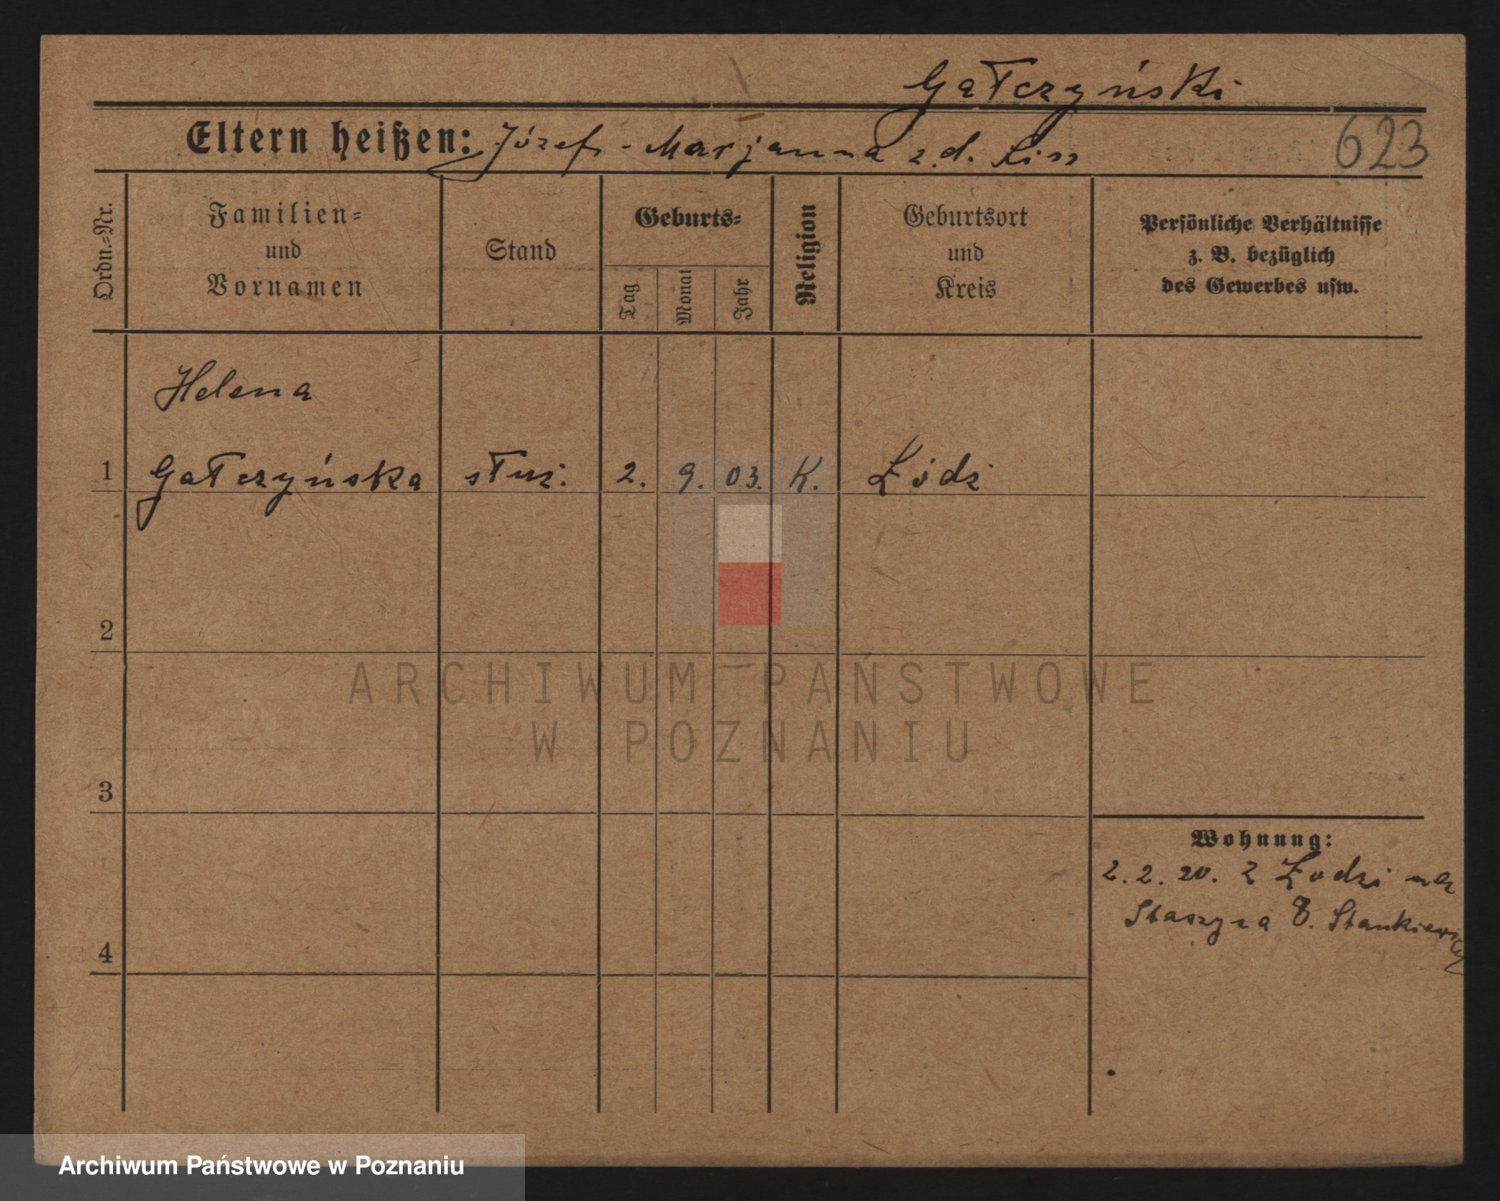 Gałczyński
Eltern heißen: Józef - Marjanna z d. Liss
623
Ordn.=Nr.
Familien=
und
Vornamen
Stand
Geburts=
Tag
Monat
Jahr
Religion
Geburtsort
und
Kreis
Persönliche Verhältnisse
z. B. bezüglich
des Gewerbes usw.
Helena
1 Gałczyńska służ. 2. 9. 03. K. Łódź
2
ARCHIWUM PAŃSTWOWE
W POZNANIU
3
Wohnung:
2. 2. 20. z Łodzi
Staszyca 8. Stankiewicz
4
Archiwum Państwowe w Poznaniu